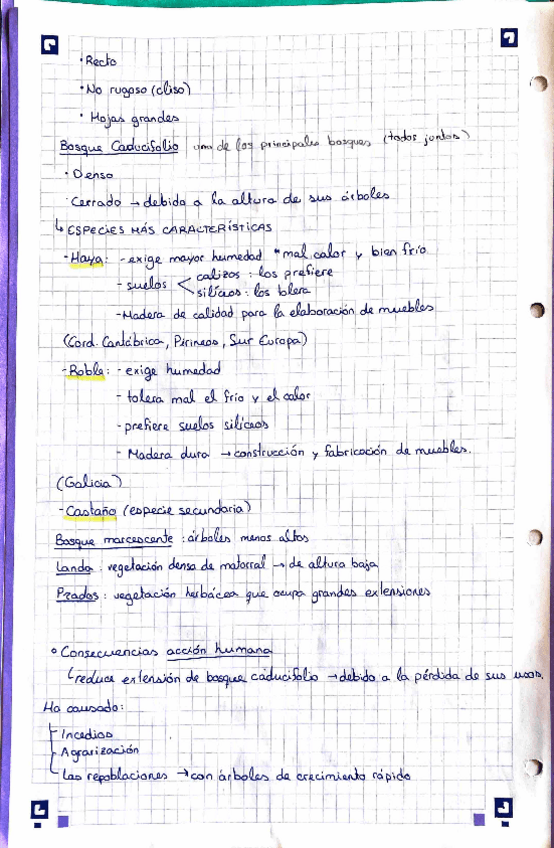 · Recto
· No rugoso (cliso)
· Hojas grandes
Bosque Caducifolio uno de los principales bosques (todos juntos)
· Denso
· Cerrado → debido a la altura de sus árboles
↳ ESPECIES MÁS CARACTERÍSTICAS
- Haya: - exige mayor humedad * mal calor y bien frío
- suelos < calizos: los prefiere
silíceos: los tolera
- Madera de calidad para la elaboración de muebles
(Cord. Cantábrica, Pirineos, Sur Europa)
- Roble: - exige humedad
- tolera mal el frío y el calor
- prefiere suelos silíceos
- Madera dura → construcción y fabricación de muebles.
(Galicia)
- Castaño (especie secundaria)
Bosque marcescente: árboles menos altos
Landa: vegetación densa de matorral → de altura baja
Prados: vegetación herbácea que ocupa grandes extensiones
° Consecuencias acción humana
↳ reduce extensión de bosque caducifolio → debido a la pérdida de sus usos.
Ha causado:
- Incedios
- Agrarización
- Las repoblaciones → con árboles de crecimiento rápido